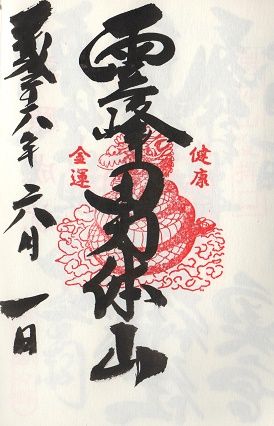 健康
霊峰男体山
金運
平成二十六年 六月 一日